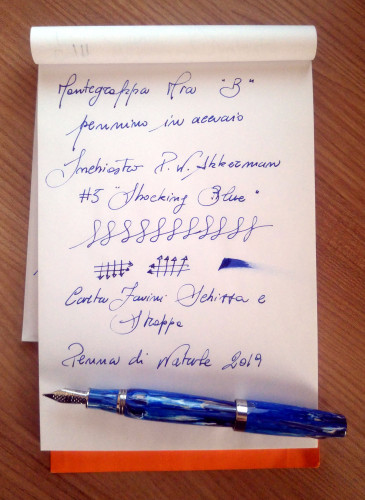 Montegrappa Mia "B"
pennino in acciaio
Inchiostro P. W. Akkerman
#5 "Shocking Blue"
Carta Favini Schizza e
Strappa
Penna di Natale 2019